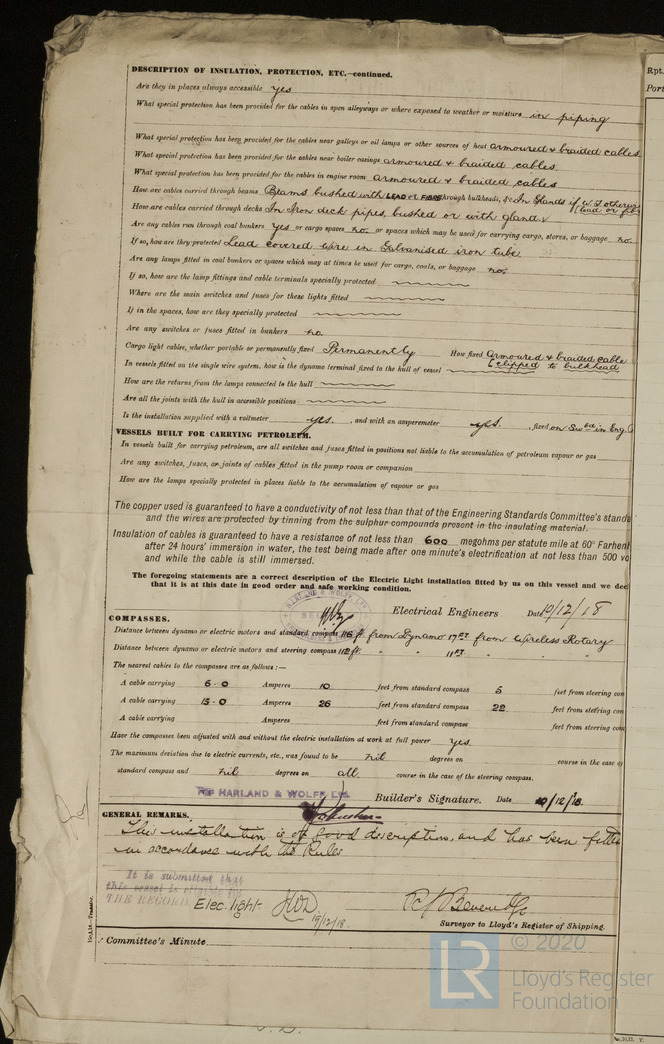 DESCRIPTION OF INSULATION, PROTECTION, ETC.—continued.
Are they in places always accessible yes
What special protection has been provided for the cables in open alleyways or where exposed to weather or moisture in piping
What special protection has been provided for the cables near galleys or oil lamps or other sources of heat armoured & braided cables
What special protection has been provided for the cables near boiler casings armoured & braided cables
What special protection has been provided for the cables in engine room armoured & braided cables
How are cables carried through beams Beams bushed with LEAD or FIBRE through bulkheads, &c. In Glands if W.T. otherwise
(lead or fib
How are cables carried through decks In Iron deck pipes, bushed or with gland.
Are any cables run through coal bunkers yes or cargo spaces no. or spaces which may be used for carrying cargo, stores, or baggage no.
If so, how are they protected Lead covered wire in Galvanised iron tube
Are any lamps fitted in coal bunkers or spaces which may at times be used for cargo, coals, or baggage no.
If so, how are the lamp fittings and cable terminals specially protected
Where are the main switches and fuses for these lights fitted
If in the spaces, how are they specially protected
Are any switches or fuses fitted in bunkers no
Cargo light cables, whether portable or permanently fixed Permanently How fixed armoured & braided cable
clipped to bulkhead
In vessels fitted on the single wire system, how is the dynamo terminal fixed to the hull of vessel
How are the returns from the lamps connected to the hull
Are all the joints with the hull in accessible positions
Is the installation supplied with a voltmeter yes. , and with an amperemeter yes. , fixed on Swbd in Eng.
VESSELS BUILT FOR CARRYING PETROLEUM.
In vessels built for carrying petroleum, are all switches and fuses fitted in positions not liable to the accumulation of petroleum vapour or gas
Are any switches, fuses, or joints of cables fitted in the pump room or companion
How are the lamps specially protected in places liable to the accumulation of vapour or gas
The copper used is guaranteed to have a conductivity of not less than that of the Engineering Standards Committee's stand
and the wires are protected by tinning from the sulphur compounds present in the insulating material.
Insulation of cables is guaranteed to have a resistance of not less than 600 megohms per statute mile at 60° Farhen
after 24 hours' immersion in water, the test being made after one minute's electrification at not less than 500 vo
and while the cable is still immersed.
The foregoing statements are a correct description of the Electric Light installation fitted by us on this vessel and we dec
that it is at this date in good order and safe working condition.
HARLAND & WOLFF LTD
Electrical Engineers Date 10/12/18
COMPASSES.
Distance between dynamo or electric motors and standard compass 116 ft. from Dynamo 17 ft from Wireless Rotary
Distance between dynamo or electric motors and steering compass 112 ft. " " 11 ft " " "
The nearest cables to the compasses are as follows:—
A cable carrying 6·0 Amperes 10 feet from standard compass 5 feet from steering com
A cable carrying 15·0 Amperes 26 feet from standard compass 22 feet from steering com
A cable carrying Amperes feet from standard compass feet from steering com
Have the compasses been adjusted with and without the electric installation at work at full power yes
The maximum deviation due to electric currents, etc., was found to be nil degrees on course in the case of
standard compass and nil degrees on all course in the case of the steering compass.
For HARLAND & WOLFF LTD.
Builder's Signature. Date 10/12/18.
GENERAL REMARKS.
This installation is of good description, and has been fitte
in accordance with the Rules
It is submitted that
this vessel is eligible for
THE RECORD Elec. light JWD 19/12/18.
Surveyor to Lloyd's Register of Shipping.
Committee's Minute
Rpt.
Port
© 2020
LR
Lloyd's Register
Foundation